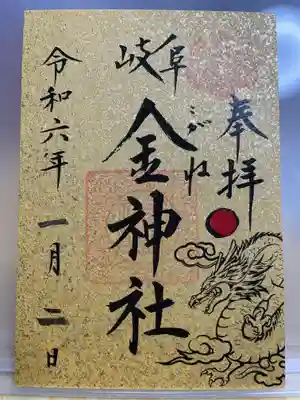 奉拝
こがね
岐阜
金神社
令和六年
一月二日